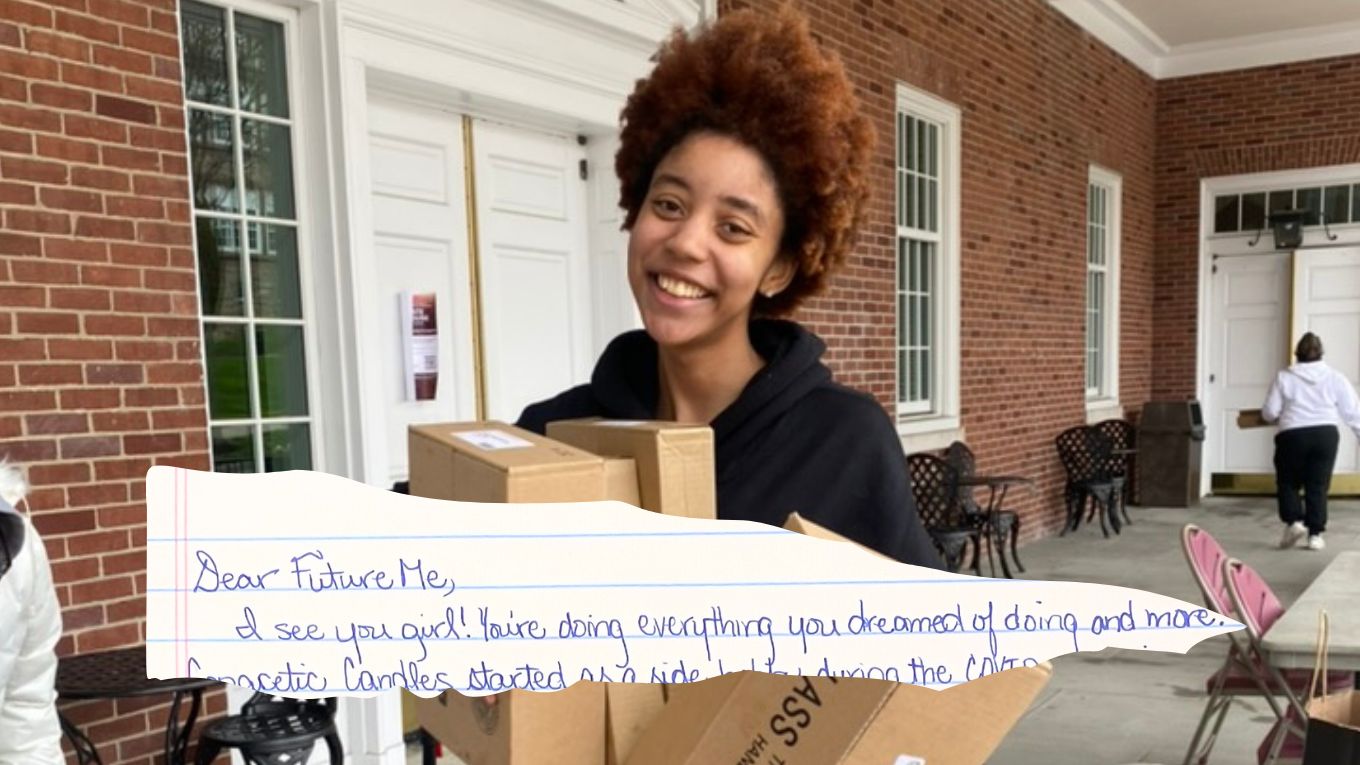 Dear Future Me,
I see you girl! You're doing everything you dreamed of doing and more.
Candles started as a side during the
ASS
HAN